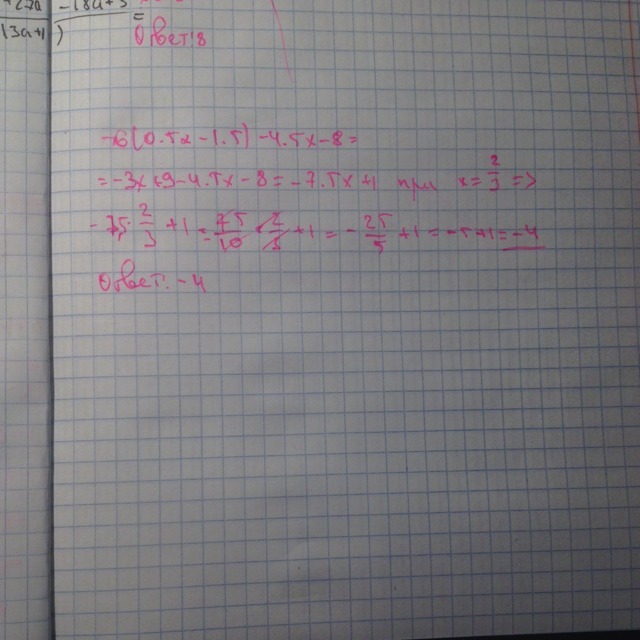 -18a+3 =
(3a+1)
Ответ: 8
-6(0.5x-1.5)-4.5x-8=
=-3x+9-4.5x-8=-7.5x+1 при x=2/3 =>
-7.5·2/3+1=-75/10·2/3+1=-25/5+1=-5+1=-4
Ответ: -4